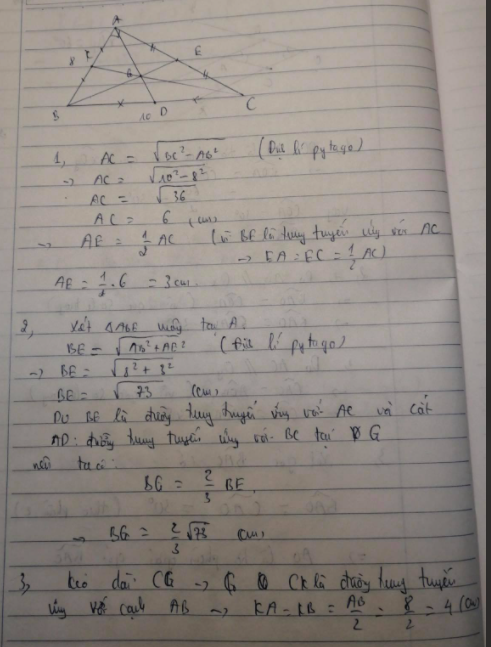 A
8
F
E
G
B
10
D
C
1, AC = √BC² - AB² (Định lí pytago)
→ AC = √10² - 8²
AC = √36
AC = 6 (cm)
→ AE = 1/2 AC (vì BE là trung tuyến ứng với AC
→ EA = EC = 1/2 AC)
AE = 1/2 . 6 = 3 cm
2, Xét ΔABE vuông tại A
BE = √AB² + AE² (Định lí pytago)
→ BE = √8² + 3²
BE = √73 (cm)
Do BE là đường trung tuyến ứng với AC và cắt
AD: đường trung tuyến ứng với BC tại G
nên ta có:
BG = 2/3 BE
→ BG = 2/3 √73 (cm)
3, Kéo dài CG → CK là đường trung tuyến
ứng với cạnh AB → KA = KB = AB/2 = 8/2 = 4 (cm)